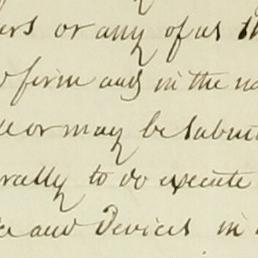 ers or any of us th
form and in the na
or may be submit
rally to do execute
ce and Devices in